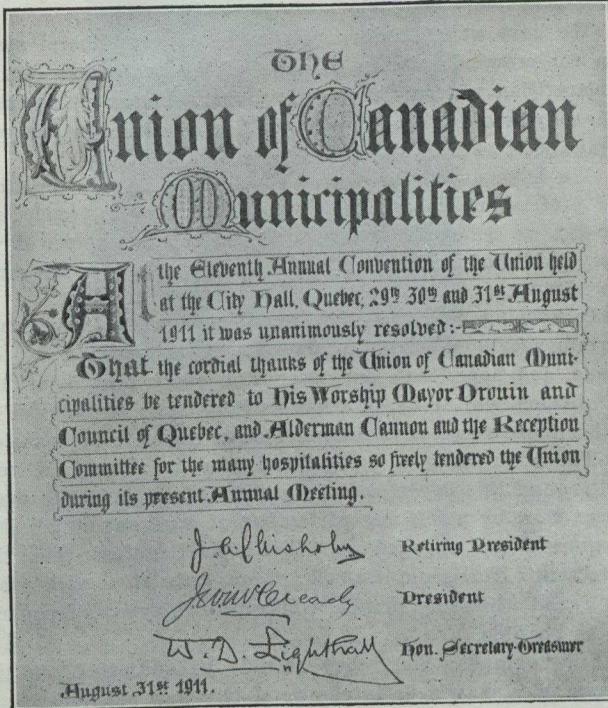 The
Union of Canadian
Municipalities
At the Eleventh Annual Convention of the Union held
at the City Hall, Quebec, 29th 30th and 31st August
1911 it was unanimously resolved:-
That the cordial thanks of the Union of Canadian Muni-
cipalities be tendered to His Worship Mayor Drouin and
Council of Quebec, and Alderman Cannon and the Reception
Committee for the many hospitalities so freely tendered the Union
during its present Annual Meeting.
J.A. Chisholm Retiring President
President
W. D. Lighthall Hon. Secretary-Treasurer
August 31st 1911.